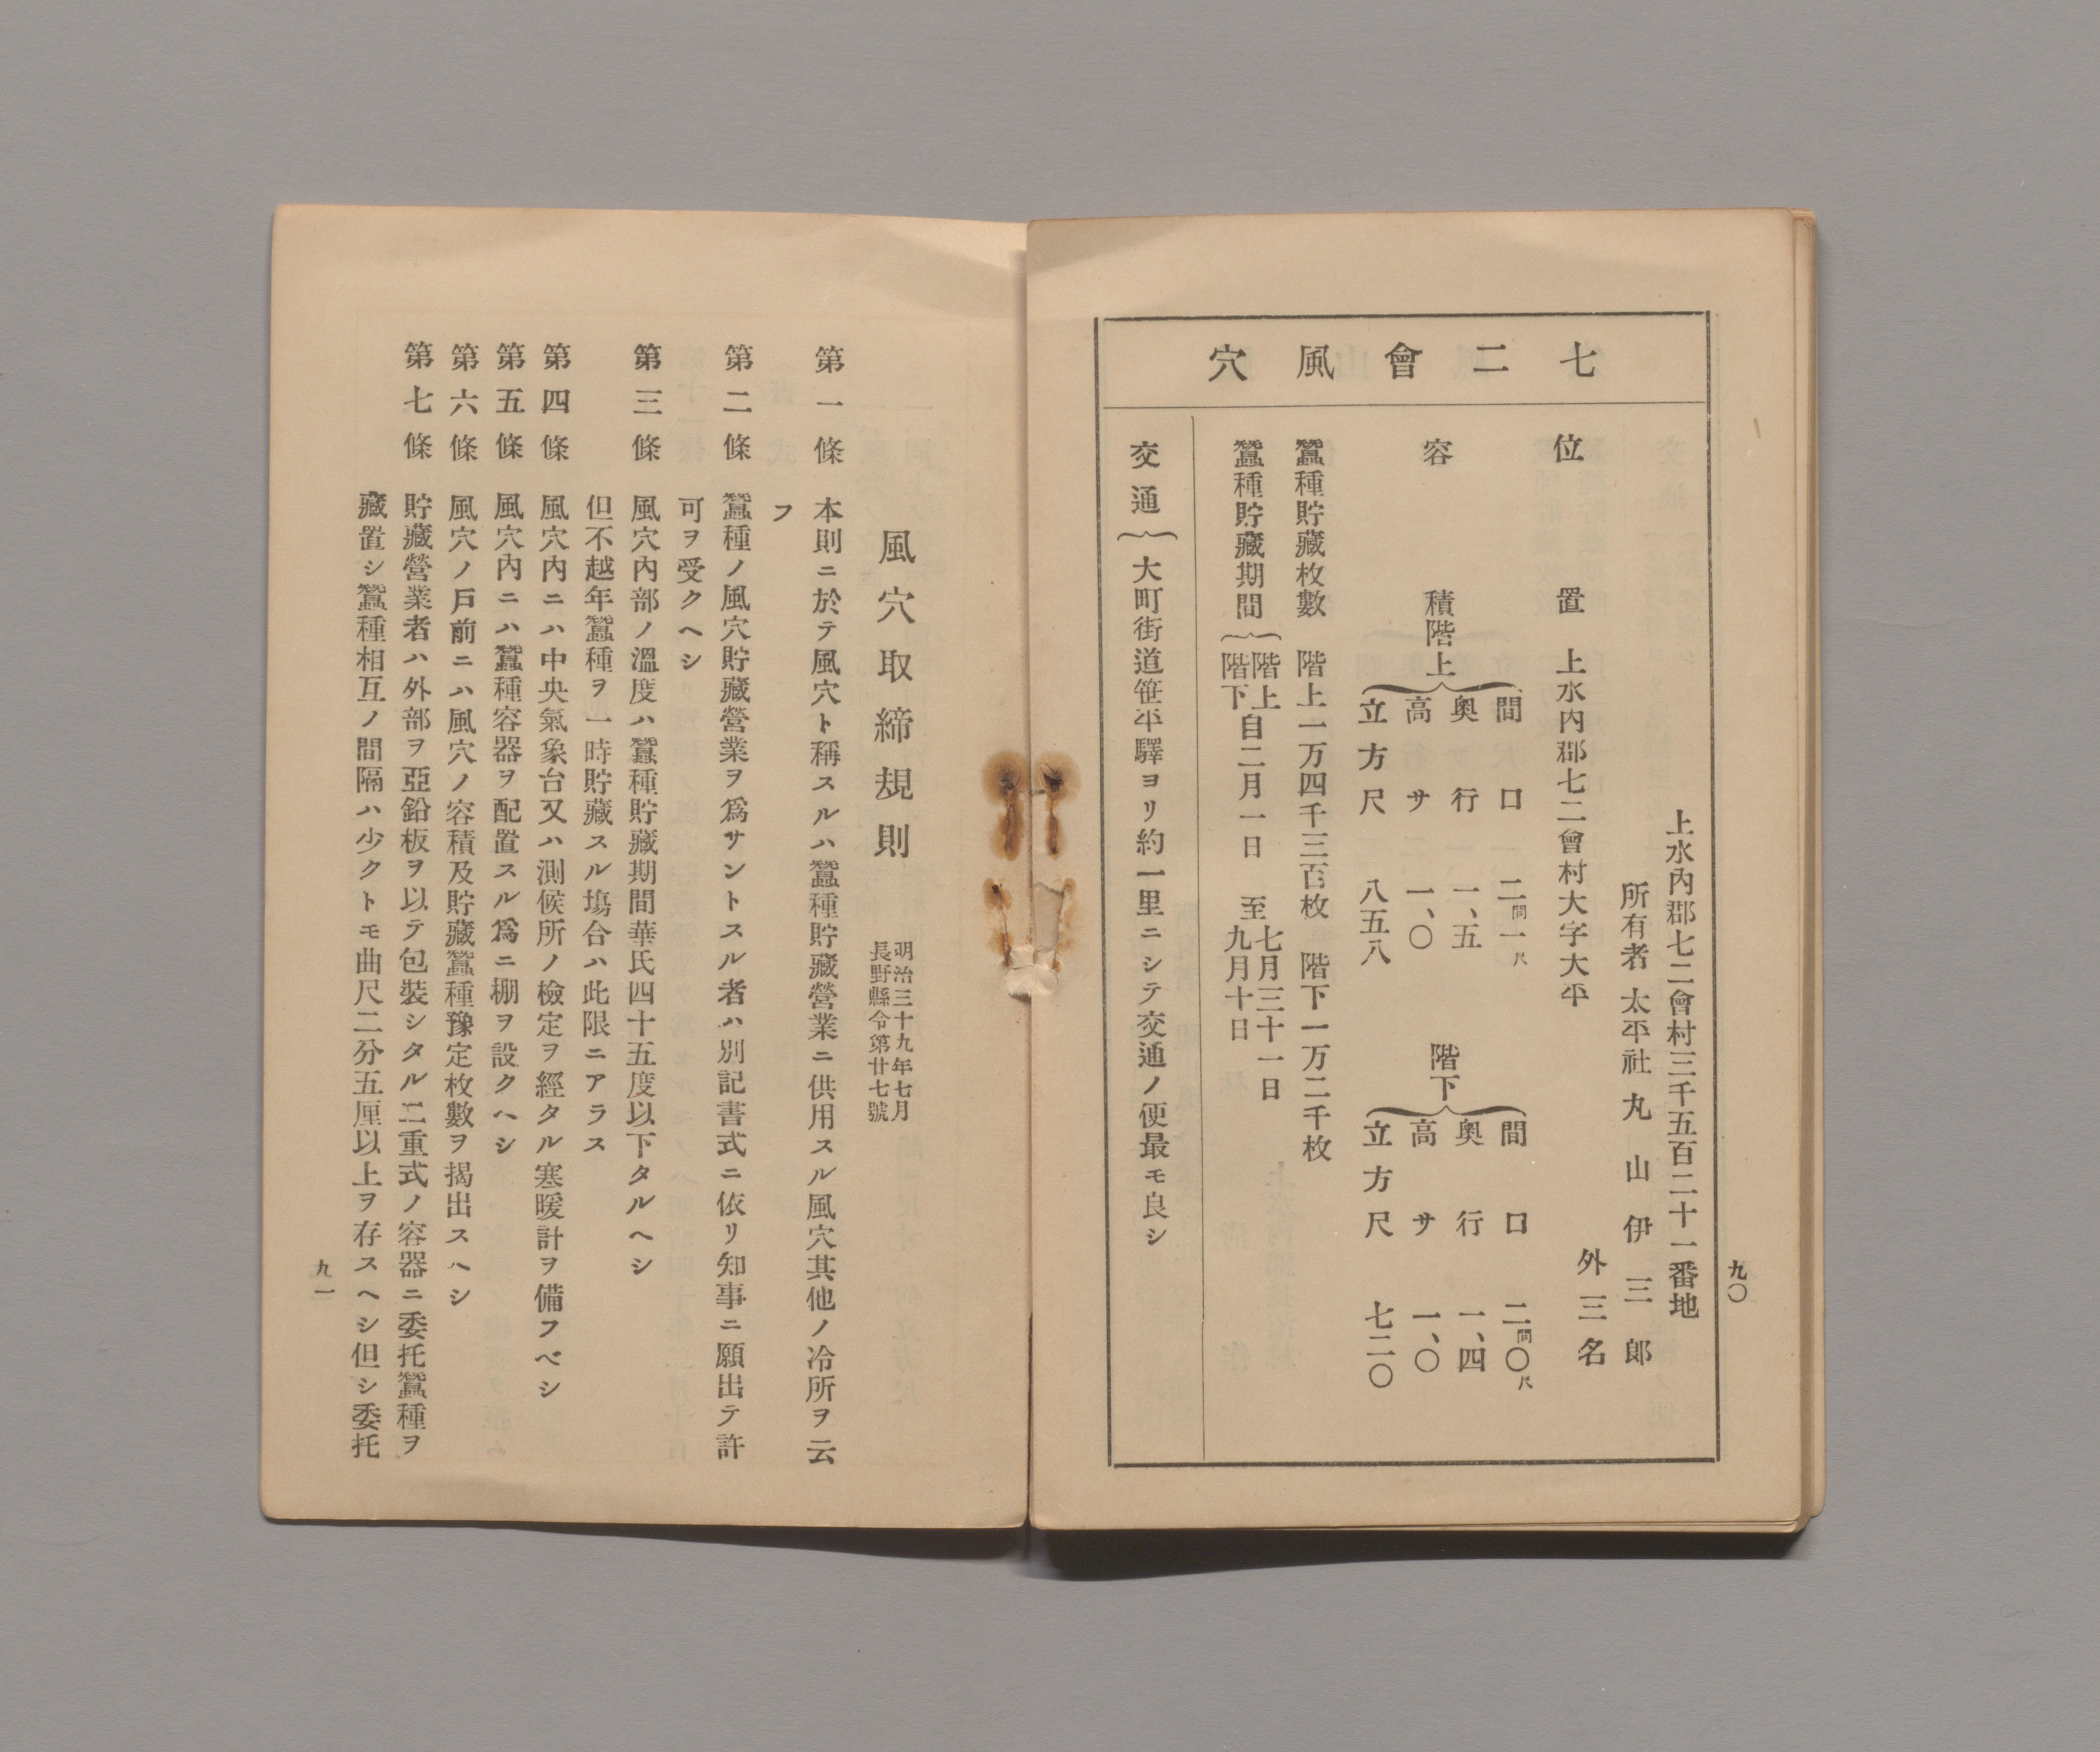 九〇
七二會風穴
上水內郡七二會村三千五百二十一番地
所有者 太平社 丸山伊三郎
外三名
位置 上水內郡七二會村大字大平
容積 階上 間口 二間一尺 階下 間口 二間〇尺
奧行 一、五 奧行 一、四
高サ 一、〇 高サ 一、〇
立方尺 八五八 立方尺 七二〇
蠶種貯藏枚數 階上一万四千三百枚 階下一万二千枚
蠶種貯藏期間 階上 階下 自二月一日 至 七月三十一日 九月十日
交通 大町街道笹平驛ヨリ約一里ニシテ交通ノ便最モ良シ
風穴取締規則
明治三十九年七月
長野縣令第廿七號
第一條 本則ニ於テ風穴ト稱スルハ蠶種貯藏營業ニ供用スル風穴其他ノ冷所ヲ云
フ
第二條 蠶種ノ風穴貯藏營業ヲ爲サントスル者ハ別記書式ニ依リ知事ニ願出テ許
可ヲ受クヘシ
第三條 風穴內部ノ溫度ハ蠶種貯藏期間華氏四十五度以下タルヘシ
但不越年蠶種ヲ一時貯藏スル塲合ハ此限ニアラス
第四條 風穴內ニハ中央氣象台又ハ測候所ノ檢定ヲ經タル寒暖計ヲ備フベシ
第五條 風穴內ニハ蠶種容器ヲ配置スル爲ニ棚ヲ設クヘシ
第六條 風穴ノ戶前ニハ風穴ノ容積及貯藏蠶種豫定枚數ヲ揭出スヘシ
第七條 貯藏營業者ハ外部ヲ亞鉛板ヲ以テ包裝シタル二重式ノ容器ニ委托蠶種ヲ
藏置シ蠶種相互ノ間隔ハ少クトモ曲尺二分五厘以上ヲ存スヘシ但シ委托
九一